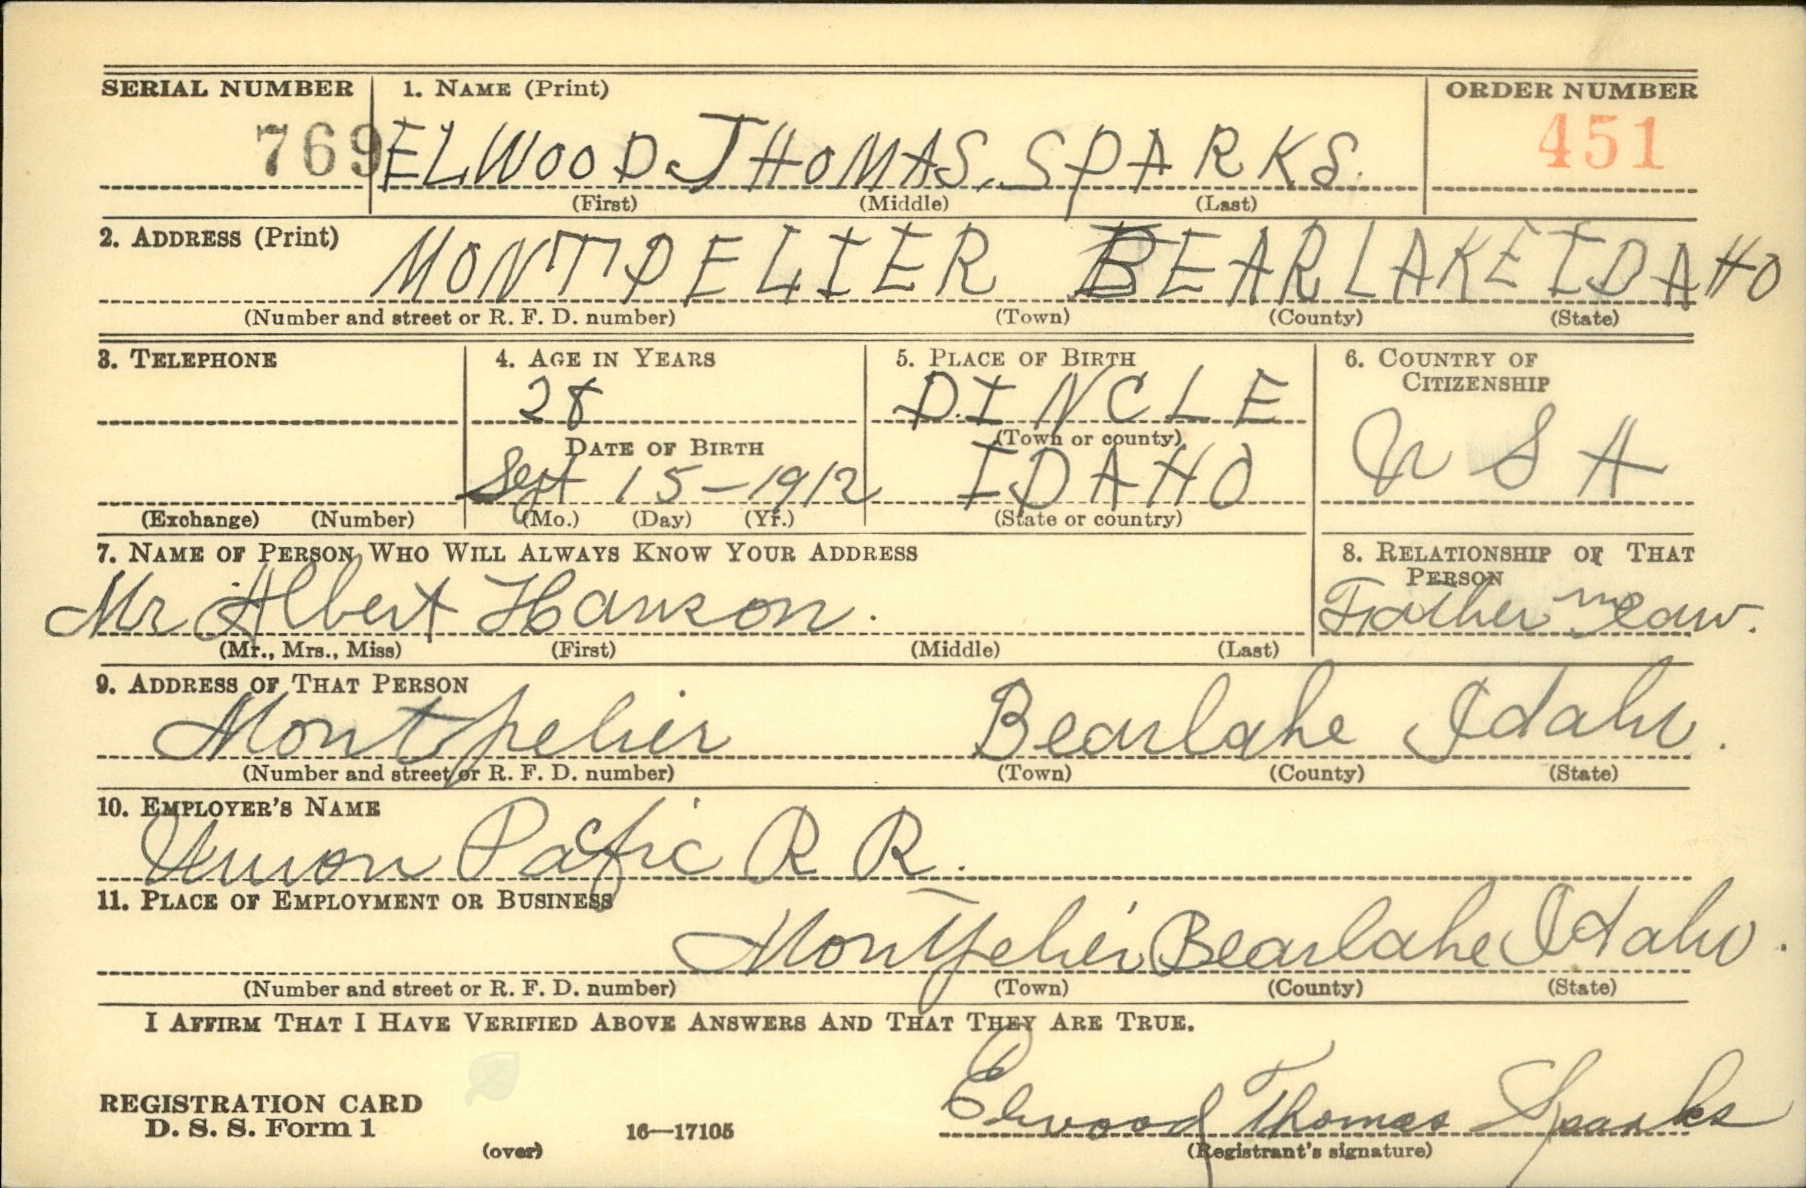 SERIAL NUMBER 1. NAME (Print) ORDER NUMBER
769 ELWOOD THOMAS. SPARKS. 451
(First) (Middle) (Last)
2. ADDRESS (Print)
MONTPELIER BEARLAKE IDAHO
(Number and street or R. F. D. number) (Town) (County) (State)
3. TELEPHONE 4. AGE IN YEARS 5. PLACE OF BIRTH 6. COUNTRY OF CITIZENSHIP
28 DINCLE
DATE OF BIRTH (Town or county) U S A
Sept 15-1912 IDAHO
(Exchange) (Number) (Mo.) (Day) (Yr.) (State or country)
7. NAME OF PERSON WHO WILL ALWAYS KNOW YOUR ADDRESS 8. RELATIONSHIP OF THAT PERSON
Mr Albert Hanson. Father in law.
(Mr., Mrs., Miss) (First) (Middle) (Last)
9. ADDRESS OF THAT PERSON
Montpelier Bearlake Idaho.
(Number and street or R. F. D. number) (Town) (County) (State)
10. EMPLOYER'S NAME
Union Pacfic R R.
11. PLACE OF EMPLOYMENT OR BUSINESS
Montpelier Bearlake Idaho.
(Number and street or R. F. D. number) (Town) (County) (State)
I AFFIRM THAT I HAVE VERIFIED ABOVE ANSWERS AND THAT THEY ARE TRUE.
REGISTRATION CARD
D. S. S. Form 1 16—17105 Elwood Thomas Sparks
(over) (Registrant's signature)